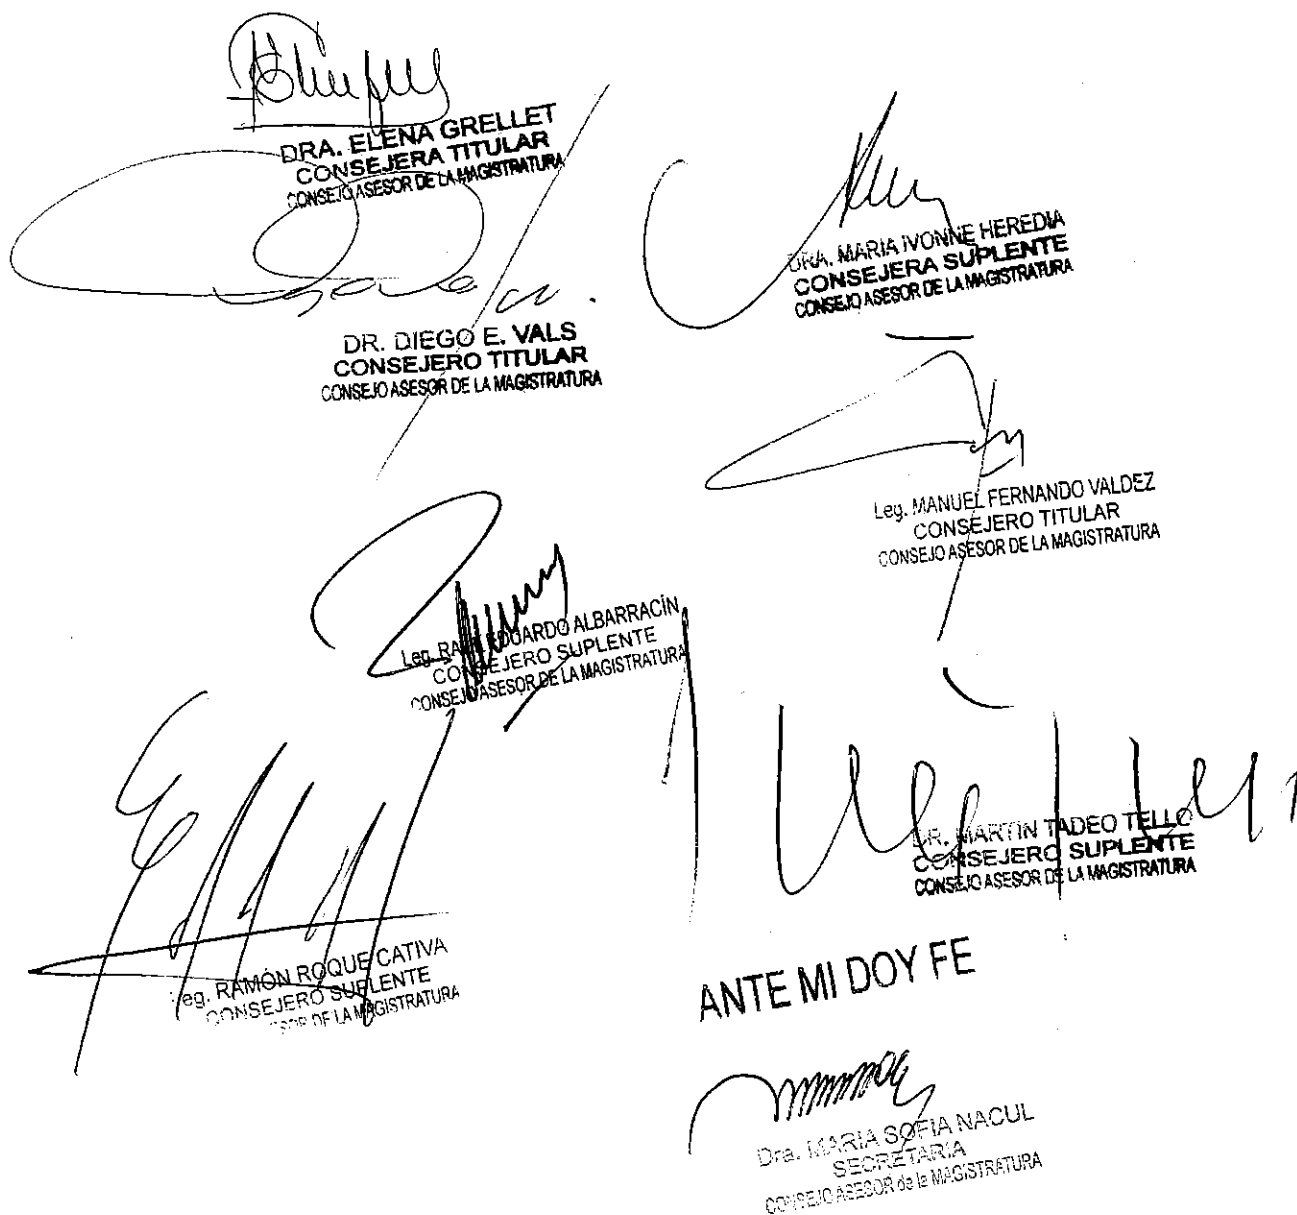 DRA. ELENA GRELLET
CONSEJERA TITULAR
CONSEJO ASESOR DE LA MAGISTRATURA
DRA. MARIA IVONNE HEREDIA
CONSEJERA SUPLENTE
CONSEJO ASESOR DE LA MAGISTRATURA
DR. DIEGO E. VALS
CONSEJERO TITULAR
CONSEJO ASESOR DE LA MAGISTRATURA
Leg. MANUEL FERNANDO VALDEZ
CONSEJERO TITULAR
CONSEJO ASESOR DE LA MAGISTRATURA
Leg. EDUARDO ALBARRACÍN
CONSEJERO SUPLENTE
CONSEJO ASESOR DE LA MAGISTRATURA
DR. MARTIN TADEO TELLO
CONSEJERO SUPLENTE
CONSEJO ASESOR DE LA MAGISTRATURA
Leg. RAMÓN ROQUE CATIVA
CONSEJERO SUPLENTE
DE LA MAGISTRATURA
ANTE MI DOY FE
Dra. MARIA SOFIA NACUL
SECRETARIA
CONSEJO ASESOR de la MAGISTRATURA